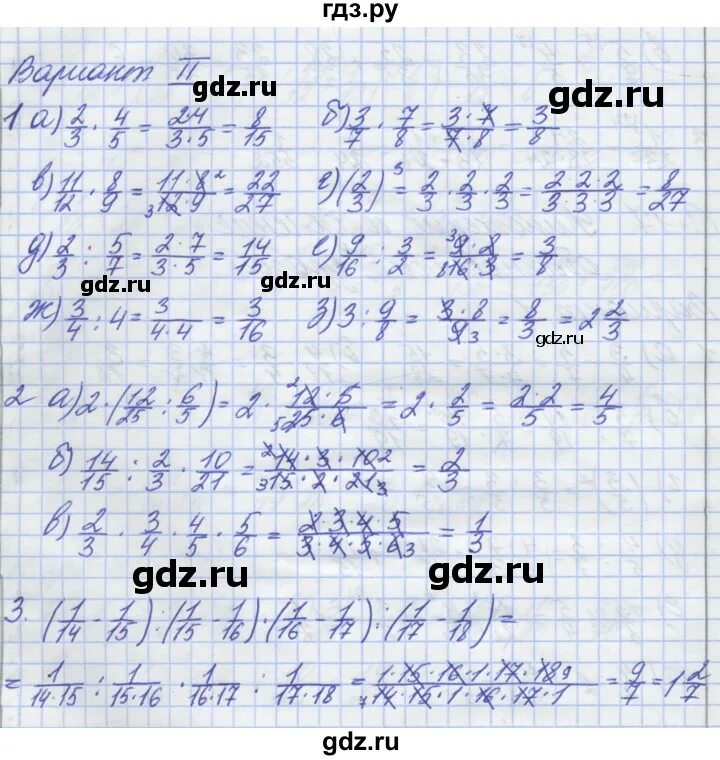 гдз.ру
Вариант II
gdz.ru gdz.ru
1 а) 2/3 · 4/5 = 2·4/3·5 = 8/15 б) 3/7 · 7/8 = 3·7/7·8 = 3/8
в) 11/12 · 8/9 = 11·8 2/3 12·9 = 22/27 г) (2/3)³ = 2/3 · 2/3 · 2/3 = 2·2·2/3·3·3 = 8/27
д) 2/3 : 5/7 = 2·7/3·5 = 14/15 е) 9/16 : 3/2 = 3 9·2/8 16·3 = 3/8
gdz.ru gdz.ru
ж) 3/4 : 4 = 3/4·4 = 3/16 з) 3 : 9/8 = 3·8/9 3 = 8/3 = 2 2/3
gdz.ru
2 а) 2·(12/25 : 6/5) = 2 · 2 12·5/5 25·6 = 2 · 2/5 = 2·2/5 = 4/5
б) 14/15 : 2/3 · 10/21 = 2 14·3·10 2/3 15·2·21 3 = 2/3
в) 2/3 · 3/4 · 4/5 · 5/6 = 2·3·4·5/3·4·5·6 3 = 1/3
gdz.ru gdz.ru
3. (1/14 - 1/15) : (1/15 - 1/16) · (1/16 - 1/17) : (1/17 - 1/18) =
= 1/14·15 : 1/15·16 · 1/16·17 : 1/17·18 = 1·15·16·1·17·18 9/7 14·15·1·16·17·1 = 9/7 = 1 2/7
gdz.ru